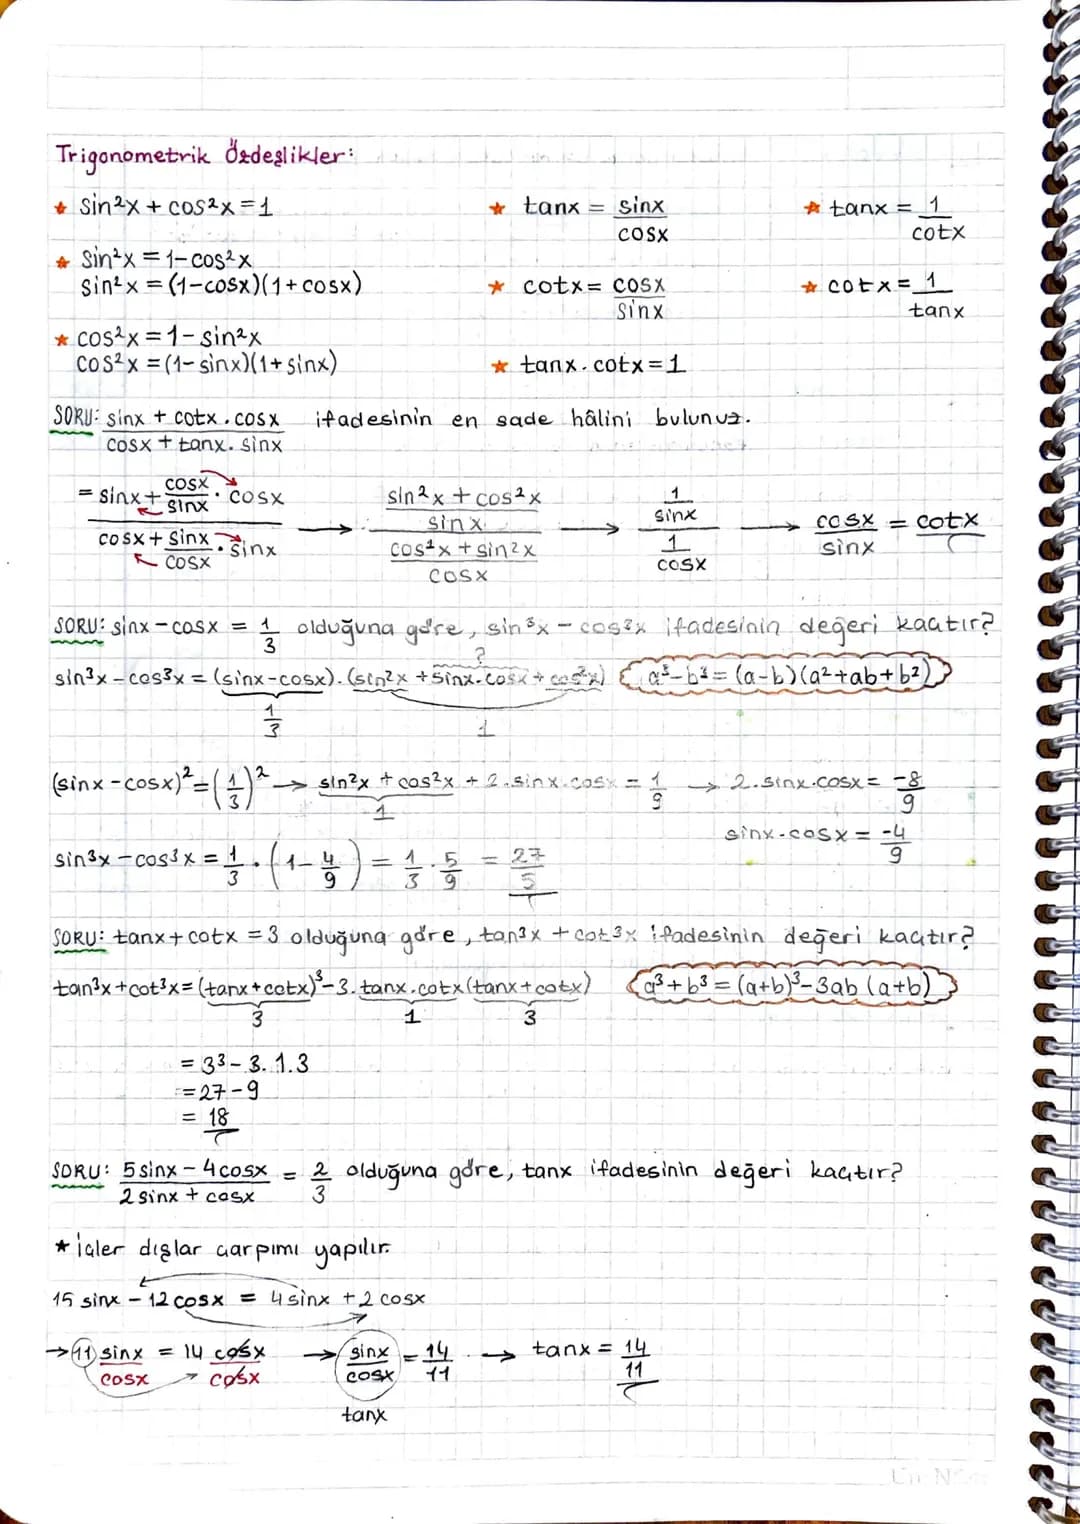 Trigonometrik Özdeşlikler:
★ sin²x + cos²x = 1
★ sin²x = 1 - cos²x
sin²x = (1-cosx)(1+cosx)
★ cos²x = 1 - sin²x
cos²x = (1-sinx)(1+sinx)
★ tanx = sinx/cosx
★ cotx = cosx/sinx
★ tanx.cotx = 1
★ tanx = 1/cotx
★ cotx = 1/tanx
SORU: (sinx + cotx.cosx)/(cosx + tanx.sinx) ifadesinin en sade hâlini bulunuz.
= (sinx + cosx/sinx · cosx)/(cosx + sinx/cosx · sinx) → ((sin²x + cos²x)/sinx)/((cos²x + sin²x)/cosx) → (1/sinx)/(1/cosx) → cosx/sinx = cotx
SORU: sinx - cosx = 1/3 olduğuna göre, sin³x - cos³x ifadesinin değeri kaçtır?
?
sin³x - cos³x = (sinx-cosx).(sin²x + sinx.cosx + cos²x) a³-b³ = (a-b)(a²+ab+b²)
1/3 1
(sinx - cosx)² = (1/3)² → sin²x + cos²x + 2.sinx.cosx = 1/9 → 2.sinx.cosx = -8/9
1
sinx.cosx = -4/9
sin³x - cos³x = 1/3 · (1 - 4/9) = 1/3 · 5/9 = 27/5
SORU: tanx + cotx = 3 olduğuna göre, tan³x + cot³x ifadesinin değeri kaçtır?
tan³x + cot³x = (tanx+cotx)³ - 3.tanx.cotx(tanx+cotx) a³+b³ = (a+b)³ - 3ab(a+b)
3 1 3
= 3³ - 3.1.3
= 27 - 9
= 18
SORU: (5sinx - 4cosx)/(2sinx + cosx) = 2/3 olduğuna göre, tanx ifadesinin değeri kaçtır?
* İçler dışlar çarpımı yapılır.
15 sinx - 12 cosx = 4sinx + 2cosx
→ 11 sinx/cosx = 14 cosx/cosx → sinx/cosx = 14/11 → tanx = 14/11
tanx